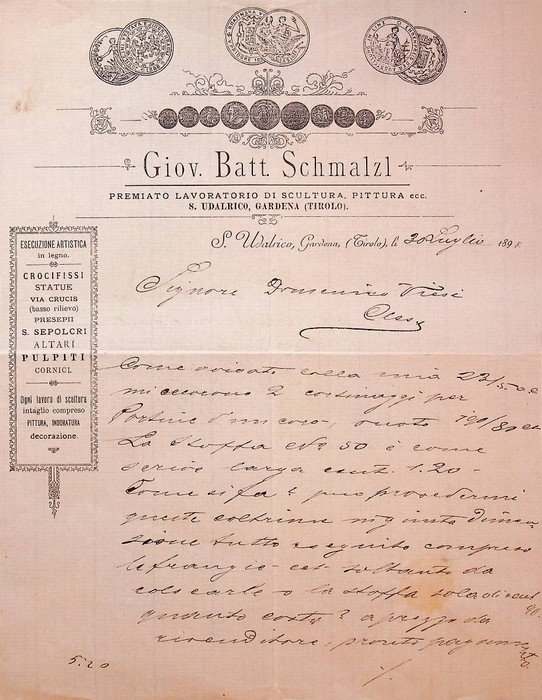 Giov. Batt. Schmalzl
PREMIATO LAVORATORIO DI SCULTURA, PITTURA ecc.
S. UDALRICO, GARDENA (TIROLO).
S. Udalrico, Gardena, (Tirolo), li 30 Luglio 189
ESECUZIONE ARTISTICA
in legno.
CROCIFISSI
STATUE
VIA CRUCIS
(basso rilievo)
PRESEPII
S. SEPOLCRI
ALTARI
PULPITI
CORNICI.
Ogni lavoro di scultura
intaglio compreso
PITTURA, INDORATURA
decorazione.
Signore Domenico
Cles
Come avisato colla mia 23/5
mi occorono 2 per
190/80
La stoffa No 50 è come
larga cent. 1.20 -
Come si fa? può provedermi
queste coltrine in giusta dimen
sione tutto eseguito compreso
le frangie - da
colocarle o la stoffa sola
quanto costa? a prezzo da
rivenditore, pronto pagamento
5.20